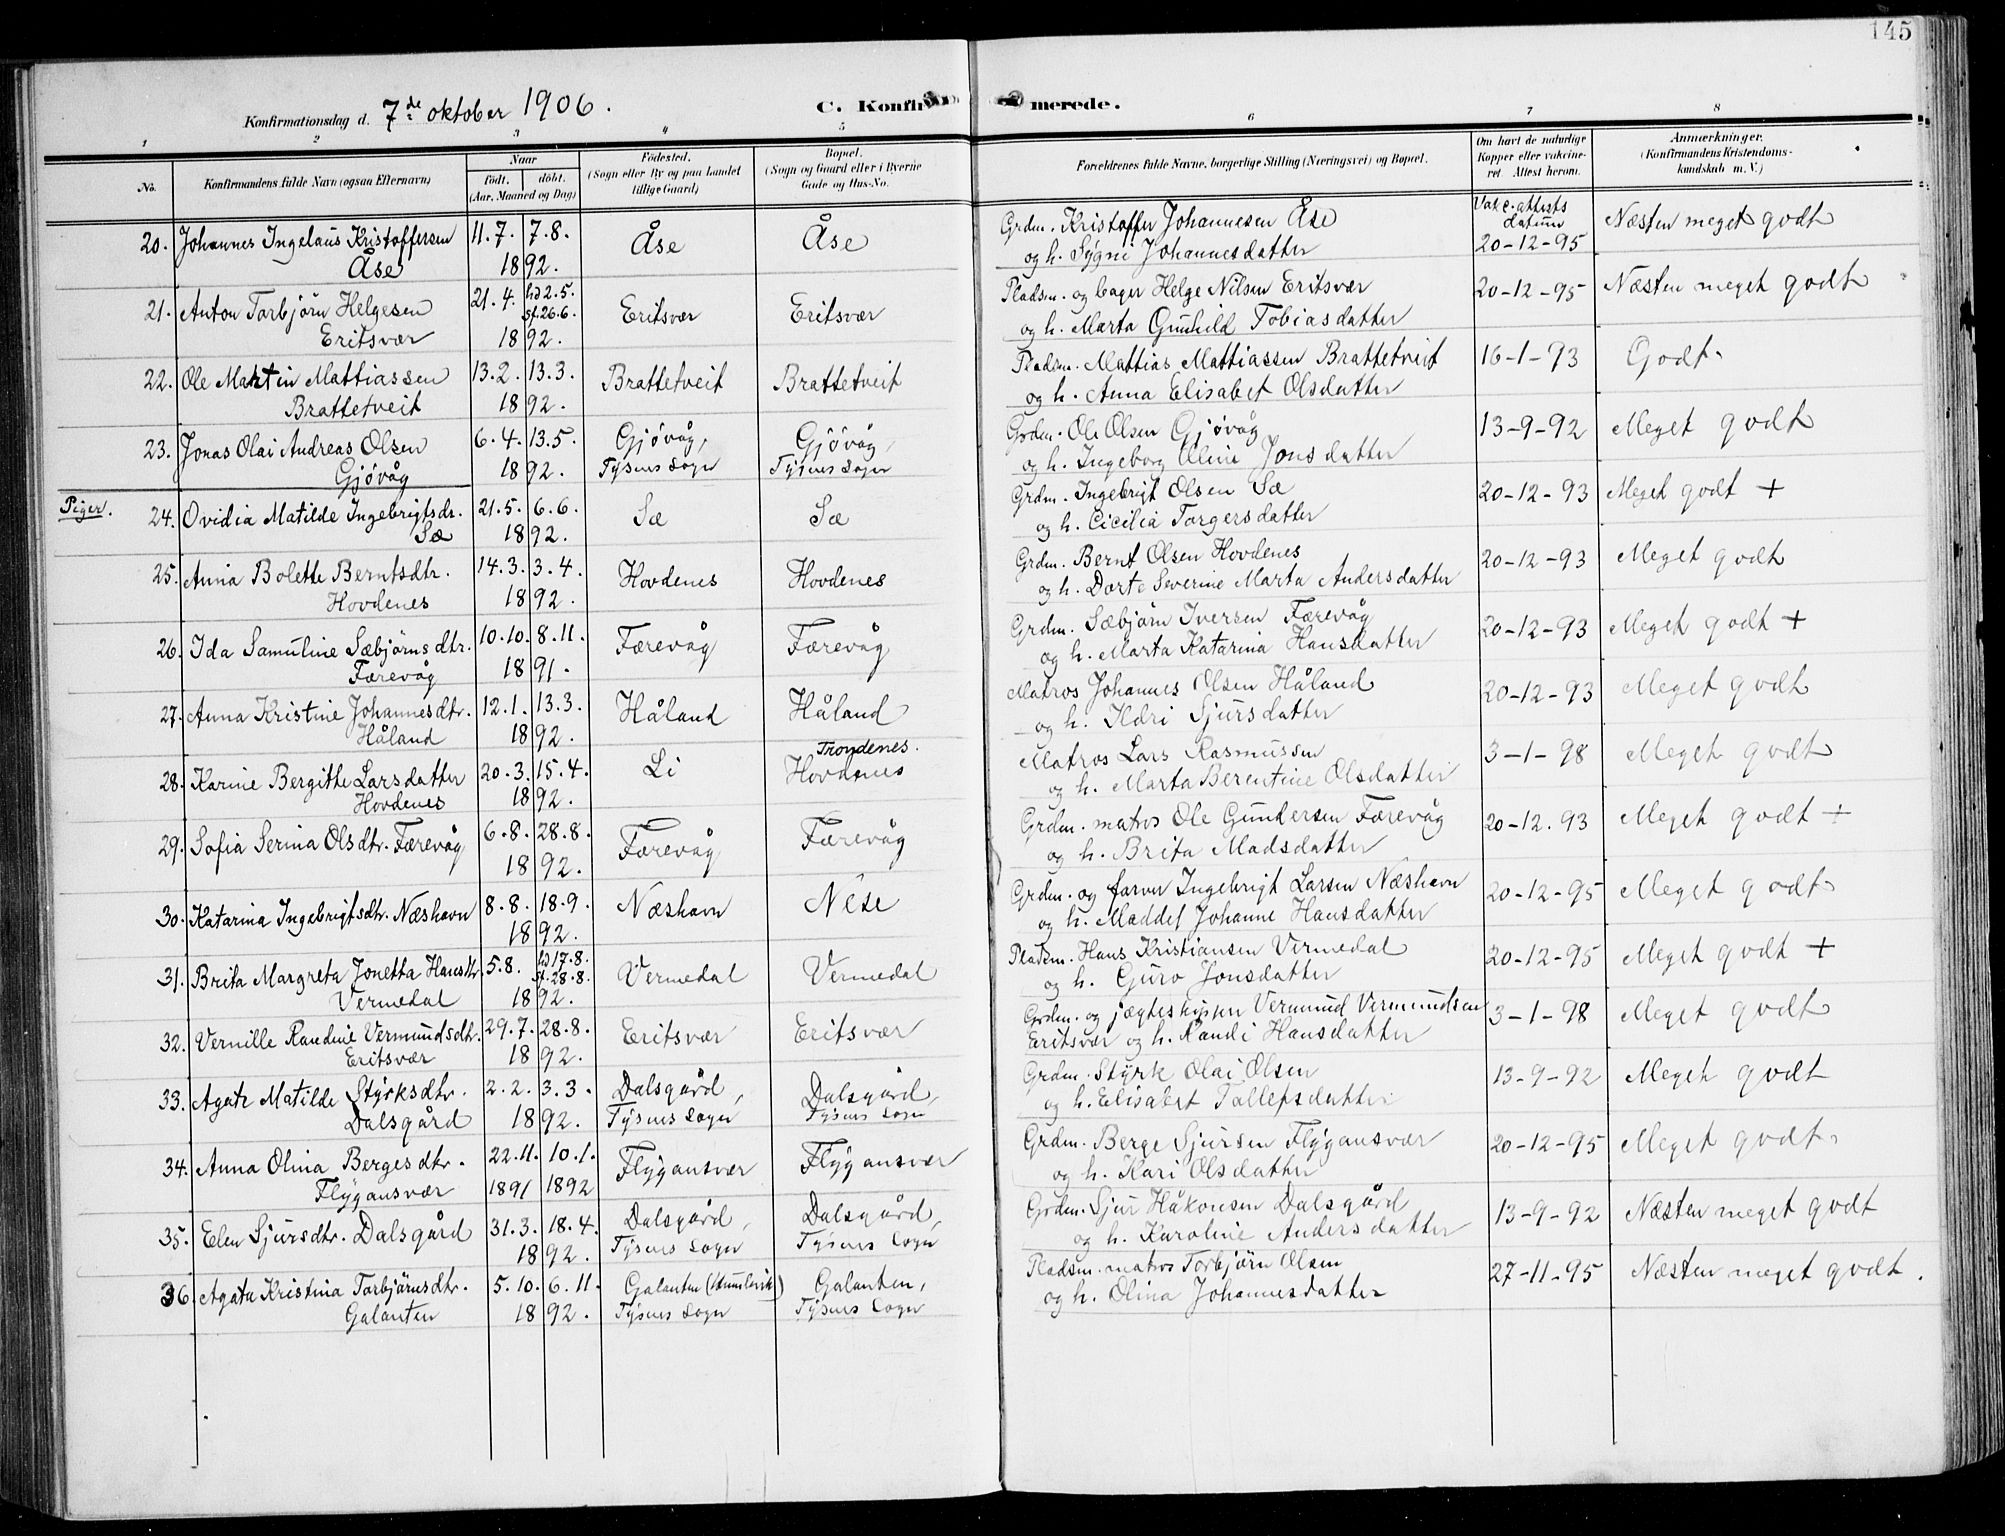 145
Konfirmationsdag d. 7de oktober 1906.
C. Konfirmerede.
1 2 3 4 5 6 7 8
No. Konfirmandens fulde Navn (ogsaa Efternavn) Naar født. døbt. (Aar, Maaned og Dag) Fødested. (Sogn eller By og paa Landet tillige Gaard) Bopæl. (Sogn og Gaard eller i Byerne Gade og Hus-No. Forældrenes fulde Navne, borgerlige Stilling (Næringsvei) og Bopæl. Om havt de naturlige Kopper eller vakcineret. Attest herom. Anmærkninger. (Konfirmandens Kristendomskundskab m. V.)
20. Johannes Ingelaus Kristoffersen 11.7. 7.8. Åse Åse Grdm. Kristoffer Johannesen Åse Vakc. attests datum Næsten meget godt
Åse 1892. og h. Sygni Johannesdatter 20-12-95
21. Anton Torbjørn Helgesen 21.4. hd 2.5. st. 26.6. Eritsvær Eritsvær Pladsm. og bager Helge Nilsen Eritsvær 20-12-95 Næsten meget godt
Eritsvær 1892. og h. Marta Gunhild Tobiasdatter
22. Ole Martin Mattiassen 13.2. 13.3. Brattetveit Brattetveit Pladsm. Mattias Mattiassen Brattetveit 16-1-93 Godt.
Brattetveit 1892. og h. Anna Elisabet Olsdatter
23. Jonas Olai Andreas Olsen 6.4. 13.5. Gjøvåg, Gjøvåg, Grdm. Ole Olsen Gjøvåg 13-9-92 Meget godt
Gjøvåg 1892. Tysnes Sogn Tysnes Sogn og h. Ingeborg Oline Jonsdatter
Piger. 24. Ovidia Matilde Ingebrigtsdr. 21.5. 6.6. Sæ Sæ Grdm. Ingebrigt Olsen Sæ 20-12-93 Meget godt +
Sæ 1892. og h. Cicilia Torgersdatter
25. Anna Bolette Berntsdtr. 14.3. 3.4. Hovdenes Hovdenes Grdm. Bernt Olsen Hovdenes 20-12-93 Meget godt
Hovdenes 1892. og h. Dorte Severine Marta Andersdatter
26. Ida Samuline Sæbjørnsdtr. 10.10. 8.11. Færevåg Færevåg Grdm. Sæbjørn Iversen Færevåg 20-12-93 Meget godt +
Færevåg 1891. og h. Marta Katarina Hansdatter
27. Anna Kristine Johannesdtr. 12.1. 13.3. Håland Håland Matros Johannes Olsen Håland 20-12-93 Meget godt
Håland 1892. og h. Kari Sjursdatter
28. Karine Bergitte Larsdatter 20.3. 15.4. Li Trondenes. Hovdenes Matros Lars Rasmussen 3-1-98 Meget godt
Hovdenes 1892. og h. Marta Berentine Olsdatter
29. Sofia Serina Olsdtr. Færevåg 6.8. 28.8. Færevåg Færevåg Grdm. matros Ole Gundersen Færevåg 20-12.93 Meget godt +
1892. og h. Brita Madsdatter
30. Katarina Ingebrigtsdtr. Næshavn 8.8. 18.9. Næshavn Nese Grdm. og farver Ingebrigt Larsen Næshavn 20-12-95 Meget godt
1892. og h. Maddel Johanne Hansdatter
31. Brita Margreta Jonetta Hansdtr. 5.8. hd 17.8. st. 28.8. Vermedal Vermedal Pladsm. Hans Kristiansen Vermedal 20-12-95 Meget godt +
Vermedal 1892. og h. Guro Jonsdatter
32. Vernille Randine Vermundsdtr. 29.7. 28.8. Eritsvær Eritsvær Grdm. og jægteskipper Vermund Vermundsen 3-1-98 Meget godt
Eritsvær 1892. Eritsvær og h. Randi Hansdatter
33. Agate Matilde Styrksdtr. 2.2. 3.3. Dalsgård, Dalsgård, Grdm. Styrk Olai Olsen 13-9-92 Meget godt
Dalsgård 1892. Tysnes Sogn Tysnes Sogn og h. Elisabet Tollefsdatter
34. Anna Olina Bergesdtr. 22.11. 10.1. Flygansvær Flygansvær Grdm. Berge Sjursen Flygansvær 20-12-95 Meget godt.
Flygansvær 1891 1892 og h. Kari Olsdatter
35. Elen Sjursdtr. Dalsgård 31.3. 18.4. Dalsgård, Dalsgård, Grdm. Sjur Håkonsen Dalsgård 13-9-92 Næsten meget godt
1892. Tysnes Sogn Tysnes Sogn og h. Karoline Andersdatter
36. Agata Kristina Torbjørnsdtr. 5.10. 6.11. Galanten (Humlevik) Galanten, Pladsm. matros Torbjørn Olsen 27-11-95 Næsten meget godt.
Galanten 1892. Tysnes Sogn Tysnes Sogn og h. Olina Johannesdatter